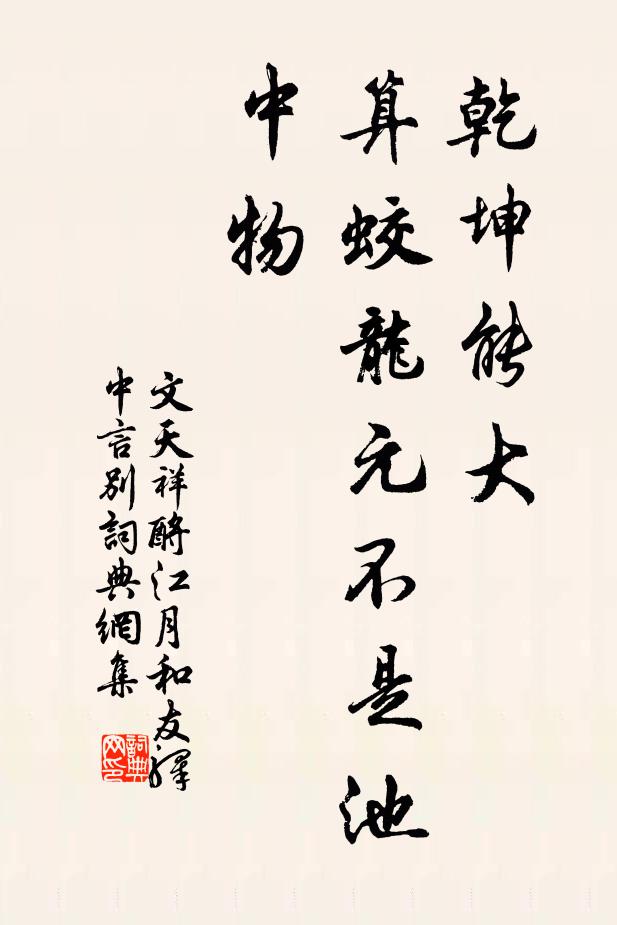 乾坤能大
算蛟龍元不是池
中物
文天祥酹江月和友驛
中言別詞典網集
詞典网印